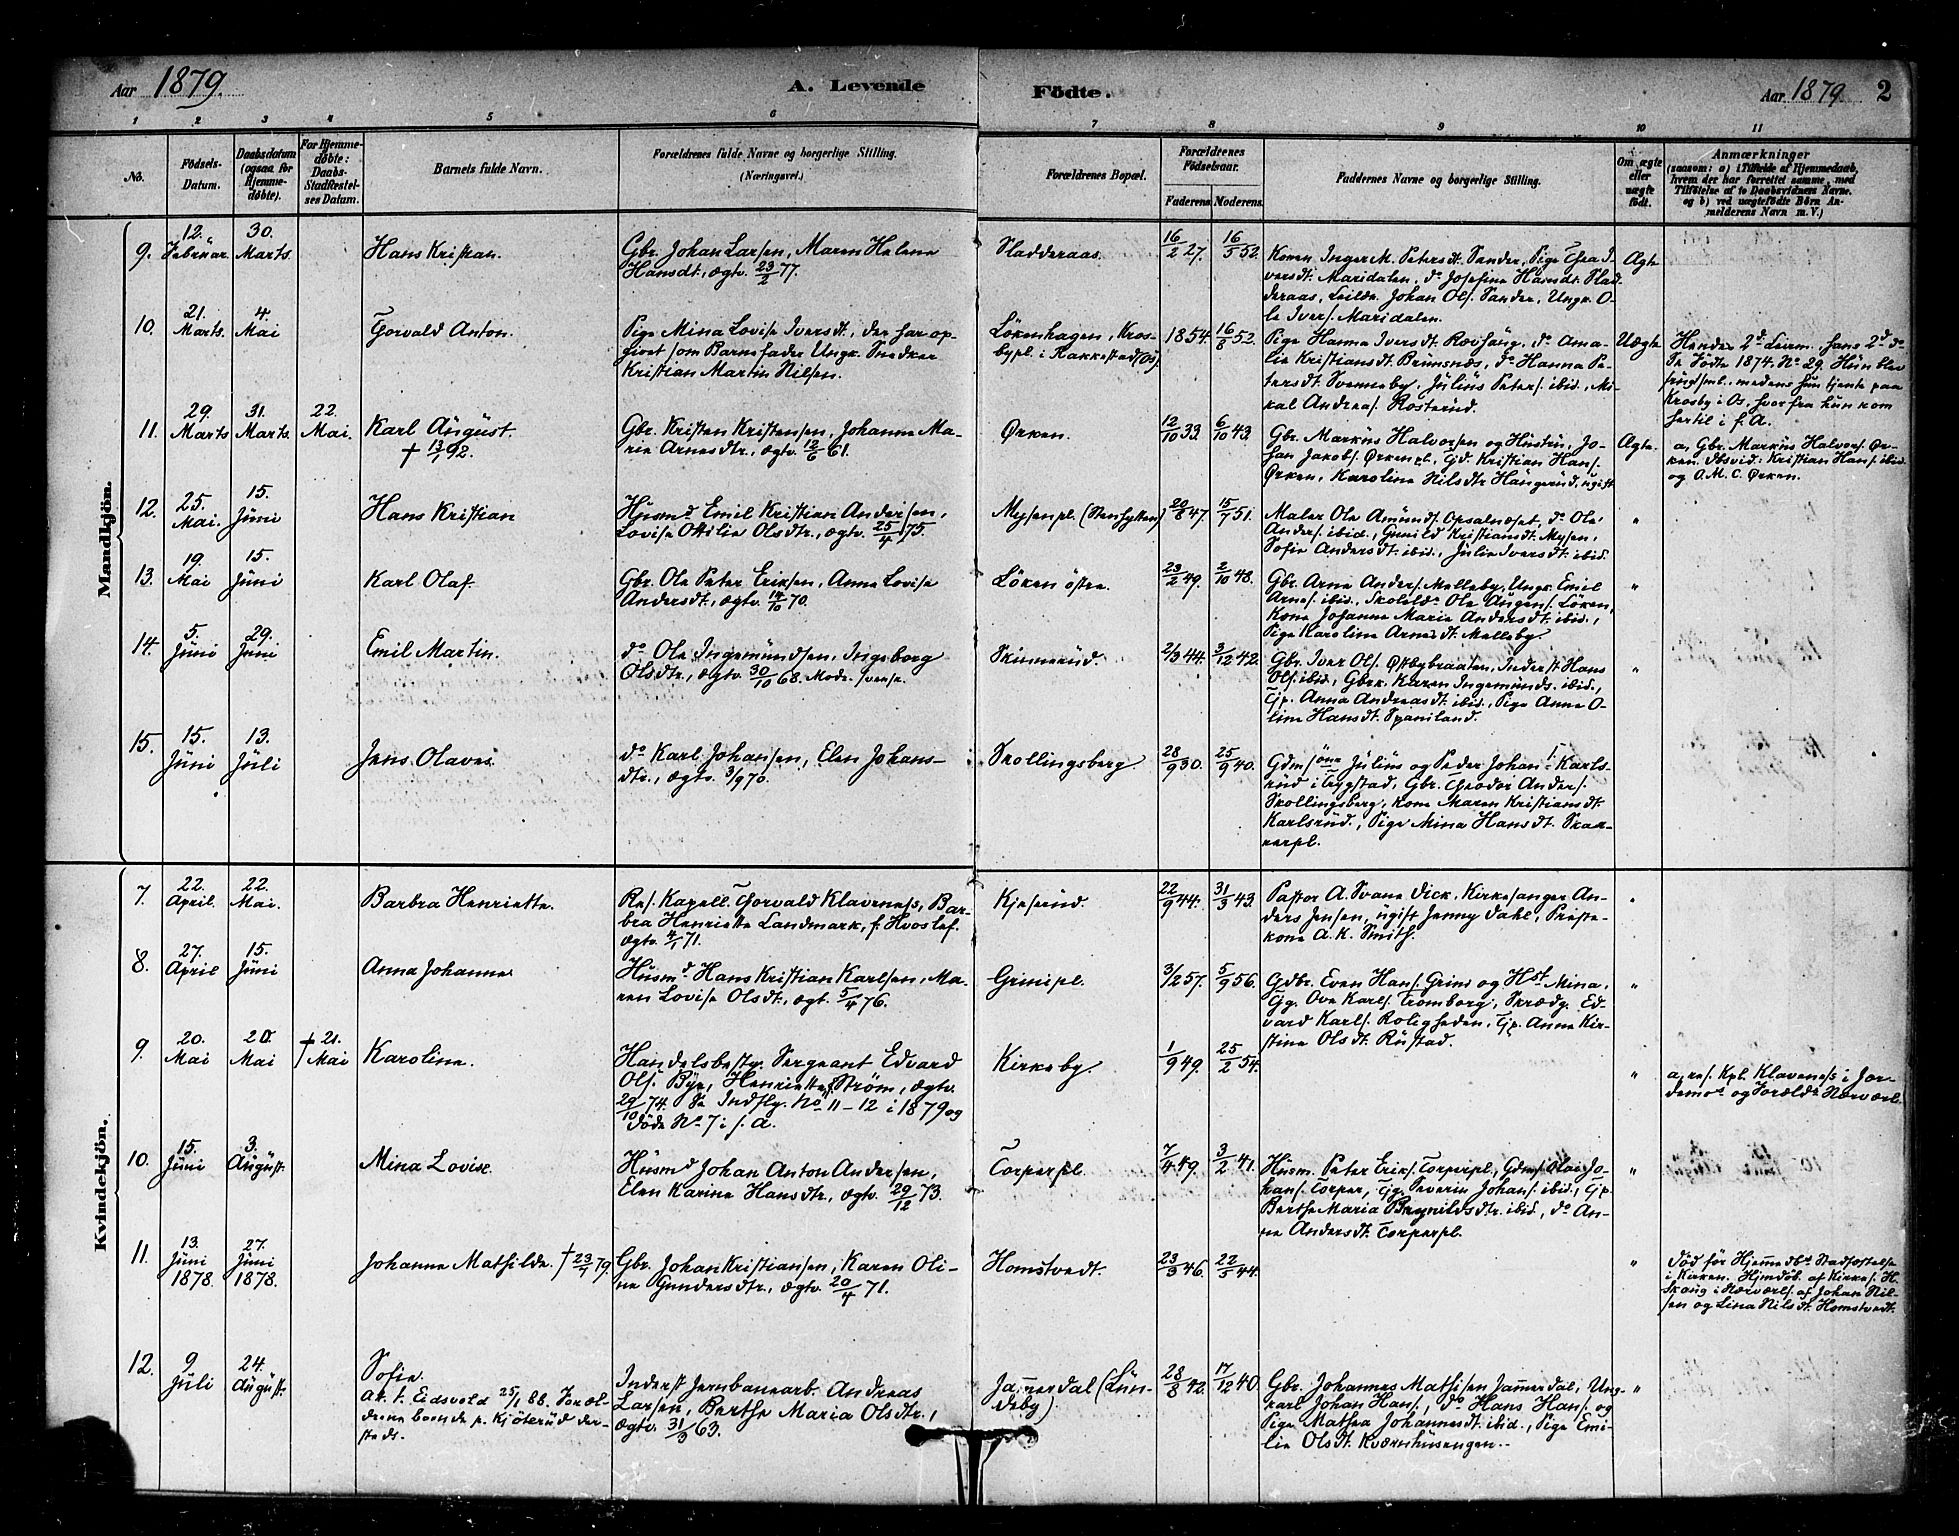 Aar 1879. A. Levende Födte. Aar 1879. 2
1 2 3 4 5 6 7 8 9 10 11
No. Födsels-Datum. Daabsdatum (ogsaa for Hjemme-døbte). For Hjemme-døbte: Daabs-Stadfæstel-ses Datum. Barnets fulde Navn. Forældrenes fulde Navne og borgerlige Stilling. (Næringsvei.) Forældrenes Bopæl. Forældrenes Födselsaar. Faderens. Moderens. Faddernes Navne og borgerlige Stilling. Om ægte eller uægte født. Anmærkninger
(saasom: a) i Tilfælde af Hjemmedaab,
hvem der har forrettet samme, med
Tilföielse af to Daabsvidners Navne.
og b) ved uægtefödte Börn An-
melderens Navn m. V.)
Mandkjön.
9. 12. Februar. 30. Marts. Hans Kristian. Gbr. Johan Larsen, Maren Helene
Hansdt., ægtv. 23/2 77. Sladderaas. 16/2 27. 16/5 52. Konen Inger M. Petersdt. Sander, Pige Thea I-
versdt. Maridalen, do Josefine Hansdt. Slad-
deraas, Leilds. Johan Ols. Sander, Ungk. O-
le Ivers. Maridalen. Ægte
10. 21. Marts. 4. Mai Torvald Anton. Pige Mina Lovise Iversdt., der har op-
givet som Barnefader Ungk. Snedker
Kristian Martin Nilsen. Lökenhagen, Kros-
bypl. i Rakkestad (Os). 1854. 16/8 52. Pige Hanna Iversdt. Rævhaug, do Ama-
lie Kristiansdt. Brunsnæs, do Hanna Pe-
tersdt. Svenneby, Julius Peters. ibid., Mi-
kal Andreas. Rosterud. Uægte Hendes 2d Leierm. hans 2d do
Se Födte 1874. No 29. Hun blev
svangr., medens hun tjente paa
Krosby i Os, hvorfra hun kom
hertil i f. A.
11. 29. Marts 31. Marts. 22. Mai. Karl August.
† 13/1 92. Gbr. Kristen Kristensen, Johanne Ma-
rie Arnesdtr., ægtv. 12/6 61. Ørken. 12/10 33. 6/10 43. Gbr. Markus Halvorsen og Hustru, Jo-
han Jakobs. Ørkenpl., Gd. Kristian Hans.
Ørken, Karoline Nilsdtr Haugerud, ugift Ægte. a, Gbr. Markus Halvors. Ør-
ken. Dbsvid: Kristian Hans. ibid.
og O. M. C. Ørken.
12. 25. Mai. 15. Juni Hans Kristian Husmd Emil Kristian Andersen,
Lovise Ottilie Olsdtr., ægtv. 25/4 75. Mysenpl. (Stenhytten) 20/8 47. 15/7 51. Maler Ole Amunds. Opsalnæset, do Ole
Anders. ibid., Gunild Kristiansdt. Mysen,
Sofie Andersdt. ibid., Julie Iversdt. ibid. "
13. 19. Mai 15. Juni Karl Olaf. Gbr. Ole Peter Eriksen, Anne Lovise
Andersdt., ægtv. 14/10 70. Löken östre. 23/2 49. 2/10 48. Gbr. Arne Anders. Melleby, Ungk. Emil
Arnes. ibid., Ole Augens. Löken,
Kone Johanne Marie Andersdt. ibid.,
Pige Karoline Arnesdt. Melleby "
14. 5. Juni 29. Juni Emil Martin. do Ole Ingemundsen, Ingeborg
Olsdtr., ægtv. 30/10 68. Modr. svensk. Skinnerud. 2/3 44. 3/12 42. Gbr. Iver Ols. Østbybraaten, Inderst Hans
Ols. ibid., Gbrk. Karen Ingemunds. ibid.,
Tjp. Anna Andreasdt. ibid., Pige Anne O-
line Hansdt. Spaniland. "
15. 15. Juni 13. Juli Jens Olaves. do Karl Johansen, Elen Johans-
dtr., ægtv. 3/9 70. Skollingsberg. 28/9 30. 25/9 40. Gdmsönne Julius og Peder Johans. Karls-
rud i Trygstad, Gbr. Theodor Anders.
Skollingsberg, kone Maren Kristiansdt.
Karlsrud, Pige Mina Hansdt. Skar-
rerpl.
Kvindekjön.
7. 22. April. 22. Mai. Barbra Henriette. Res. Kapell. Torvald Klaveness, Bar-
bra Henriette Landmark, f. Hvoslef.
ægtv. 4/1 71. Kjeserud. 22/9 44. 31/3 43. Pastor A. Svane Dick, Kirkesanger An-
ders Jensen, ugift Jenny Dahl, Præste-
kone A. K. Smith. "
8. 27. April 15. Juni Anna Johanne Husmd. Hans Kristian Karlsen, Ma-
ren Lovise Olsdt., ægt. 5/4 76. Grinipl. 3/2 57. 5/9 56. Gdbr. Even Hans. Grini og Hst Mina,
Tjg. Ove Karls. Tromborg, Skrædg. Ed-
vard Karls. Roligheden, Tjp. Anne Kir-
stine Olsdt. Rustad. "
9. 20. Mai 20. Mai † 21. Mai Karoline. Handelsbesty. Sergeant Edvard
Ols. Bye, Henriette Ström, ægtv.
29/10 74. Se Indfly. No 11-12 i 1879 og
Döde No 7 i s. A. Kirkeby. 1/9 49. 25/2 54. " a, res. Kpl. Klaveness i Jor-
demos og Foræld. Nærværl.
10. 15. Juni 3. August. Mina Lovise Husmd Johan Anton Andersen,
Elen Karine Hansdtr., ægtv. 29/12 73. Torperpl. 7/4 49. 3/2 41. Husm. Peter Eriks. Torperpl., Gdms. Olai Jo-
hans. Torper, Tjg. Severin Johans. ibid., Tjp.
Berthe Maria Brynildsdtr. ibid., do An-
ne Andersdt. Torperpl. "
11. 13. Juni 1878. 27. Juni 1878. Johanne Mathilde. † 23/7 79. Gbr. Johan Kristiansen, Karen Oli-
ne Gundersdtr., ægtv. 20/4 71. Homstvedt. 23/3 46. 22/5 44. " Död för Hjemmedbs Stadfæstelse
i Kirken. Hjmdöb. af Kirkes. H.
Skaug i Nærværl. af Johan Nil-
sen og Lina Nilsdt. Homstvedt.
12. 9 Juli 24. August. Sofie.
att. t. Eidsvold 25/1 88. Foræl-
drene boende p. Kjöterud der-
steds. Inderst Jernbanearb. Andreas
Larsen, Berthe Maria Olsdtr.,
ægtv. 31/3 63. Jammerdal (Lun-
deby) 28/8 42. 17/12 40. Gbr. Johannes Mathisen Jammerdal, Ung-
karl Johan Hans., do Hans Hans. og
Pige Mathea Johannesdt. ibid., Pige Emi-
lie Olsdt. Kværnhusengen. "